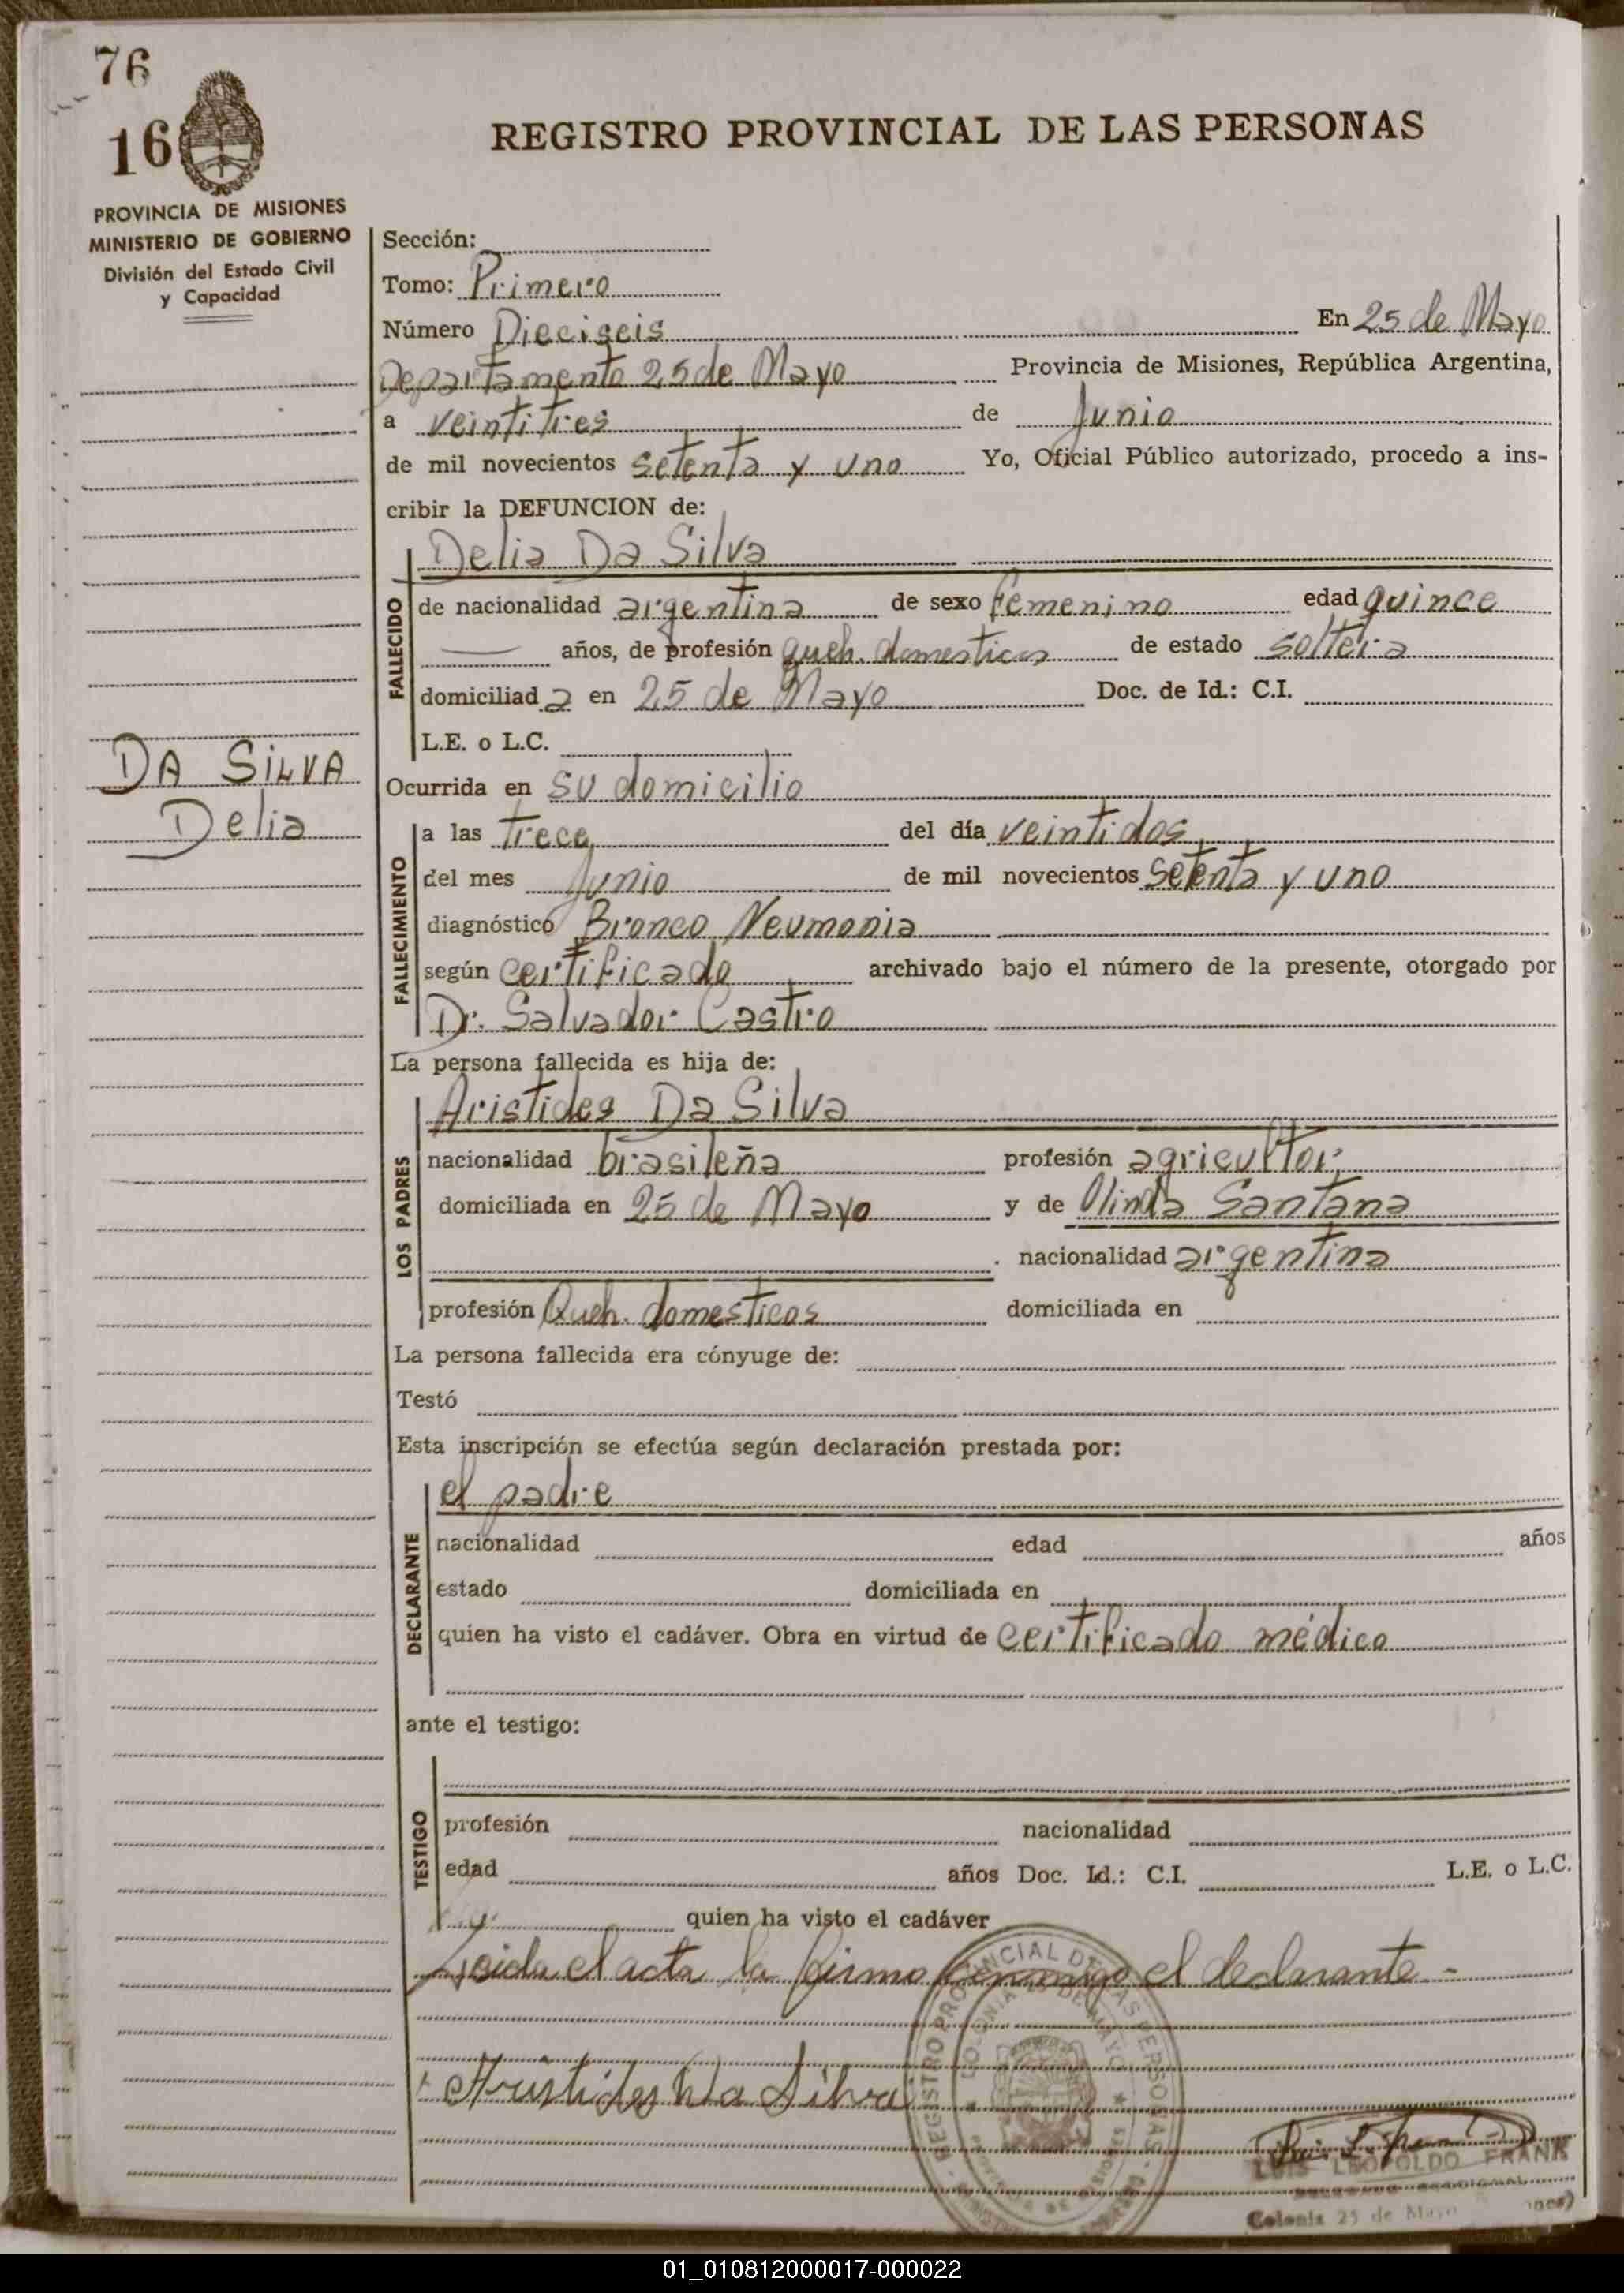 76
16
REGISTRO PROVINCIAL DE LAS PERSONAS
PROVINCIA DE MISIONES
MINISTERIO DE GOBIERNO
División del Estado Civil
y Capacidad
Sección:
Tomo: Primero
Número Dieciseis En 25 de Mayo
Departamento 25 de Mayo Provincia de Misiones, República Argentina,
a veintitres de Junio
de mil novecientos setenta y uno Yo, Oficial Público autorizado, procedo a ins-
cribir la DEFUNCION de:
Delia Da Silva
FALLECIDO
de nacionalidad argentina de sexo femenino edad quince
años, de profesión queh. domesticos de estado soltera
domiciliad a en 25 de Mayo Doc. de Id.: C.I.
L.E. o L.C.
DA SILVA
Delia
Ocurrida en su domicilio
FALLECIMIENTO
a las trece del día veintidos
del mes Junio de mil novecientos setenta y uno
diagnóstico Bronco Neumonia
según certificado archivado bajo el número de la presente, otorgado por
Dr. Salvador Castro
La persona fallecida es hija de:
Aristides Da Silva
LOS PADRES
nacionalidad brasileña profesión agricultor
domiciliada en 25 de Mayo y de Olinda Santana
nacionalidad argentina
profesión Queh. domesticos domiciliada en
La persona fallecida era cónyuge de:
Testó
Esta inscripción se efectúa según declaración prestada por:
el padre
DECLARANTE
nacionalidad edad años
estado domiciliada en
quien ha visto el cadáver. Obra en virtud de certificado médico
ante el testigo:
TESTIGO
profesión nacionalidad
edad años Doc. Id.: C.I. L.E. o L.C.
quien ha visto el cadáver
Leida el acta la firma conmigo el declarante -
Aristides da Silva
REGISTRO PROVINCIAL DE LAS PERSONAS
LUIS LEOPOLDO FRANK
Colonia 25 de Mayo
01_010812000017-000022